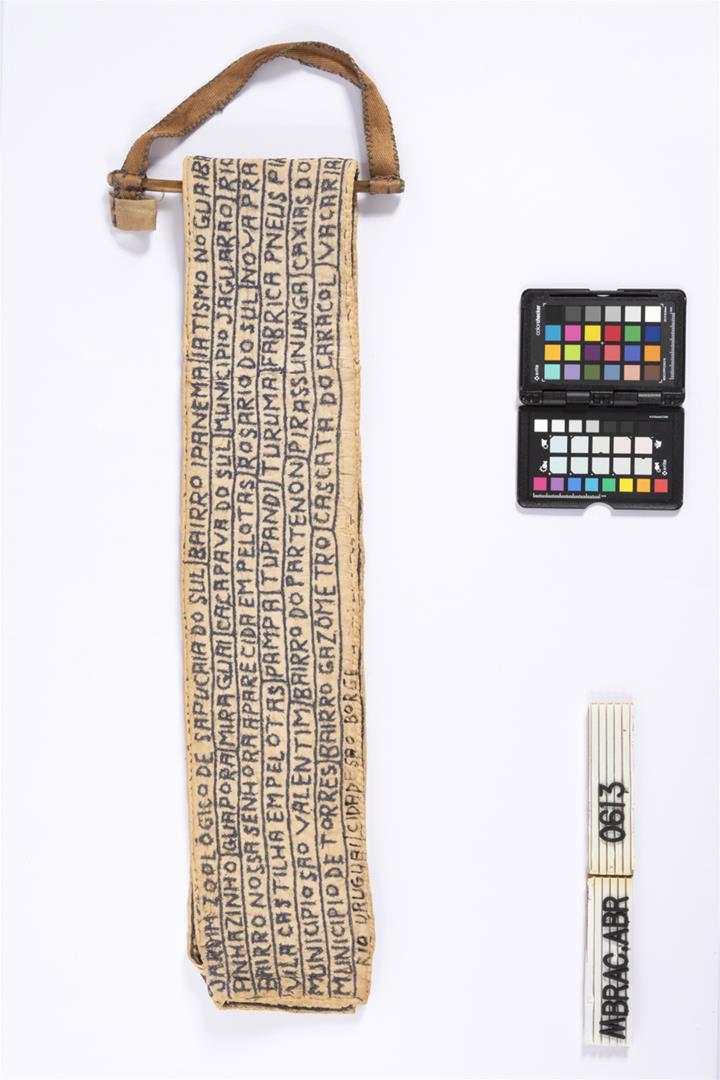 JARDIM ZOOLÓGICO DE SAPUCAIA DO SUL BAIRRO IPANEMA IATISMO NO GUAIB
PINHAZINHO GUAPORA MIRAGUAI CAÇAPAVA DO SUL MUNICIPIO JAGUARAO RIO
BAIRRO NOSSA SENHORA APARECIDA EM PELOTAS ROSARIO DO SUL NOVA PRA
VILA CASTILHA EM PELOTAS PAMPA TUPANDI TURUMA FABRICA PNEUS PI
MUNICIPIO SÃO VALENTIM BAIRRO DO PARTENON PIRASSUNUNGA CAXIAS DO
MUNICIPIO DE TORRES BAIRRO GAZOMETRO CASCATA DO CARACOL VACARIA
RIO URUGUAI CIDADE SÃO BORGE
colorchecker
MBRAC.ABR 0613